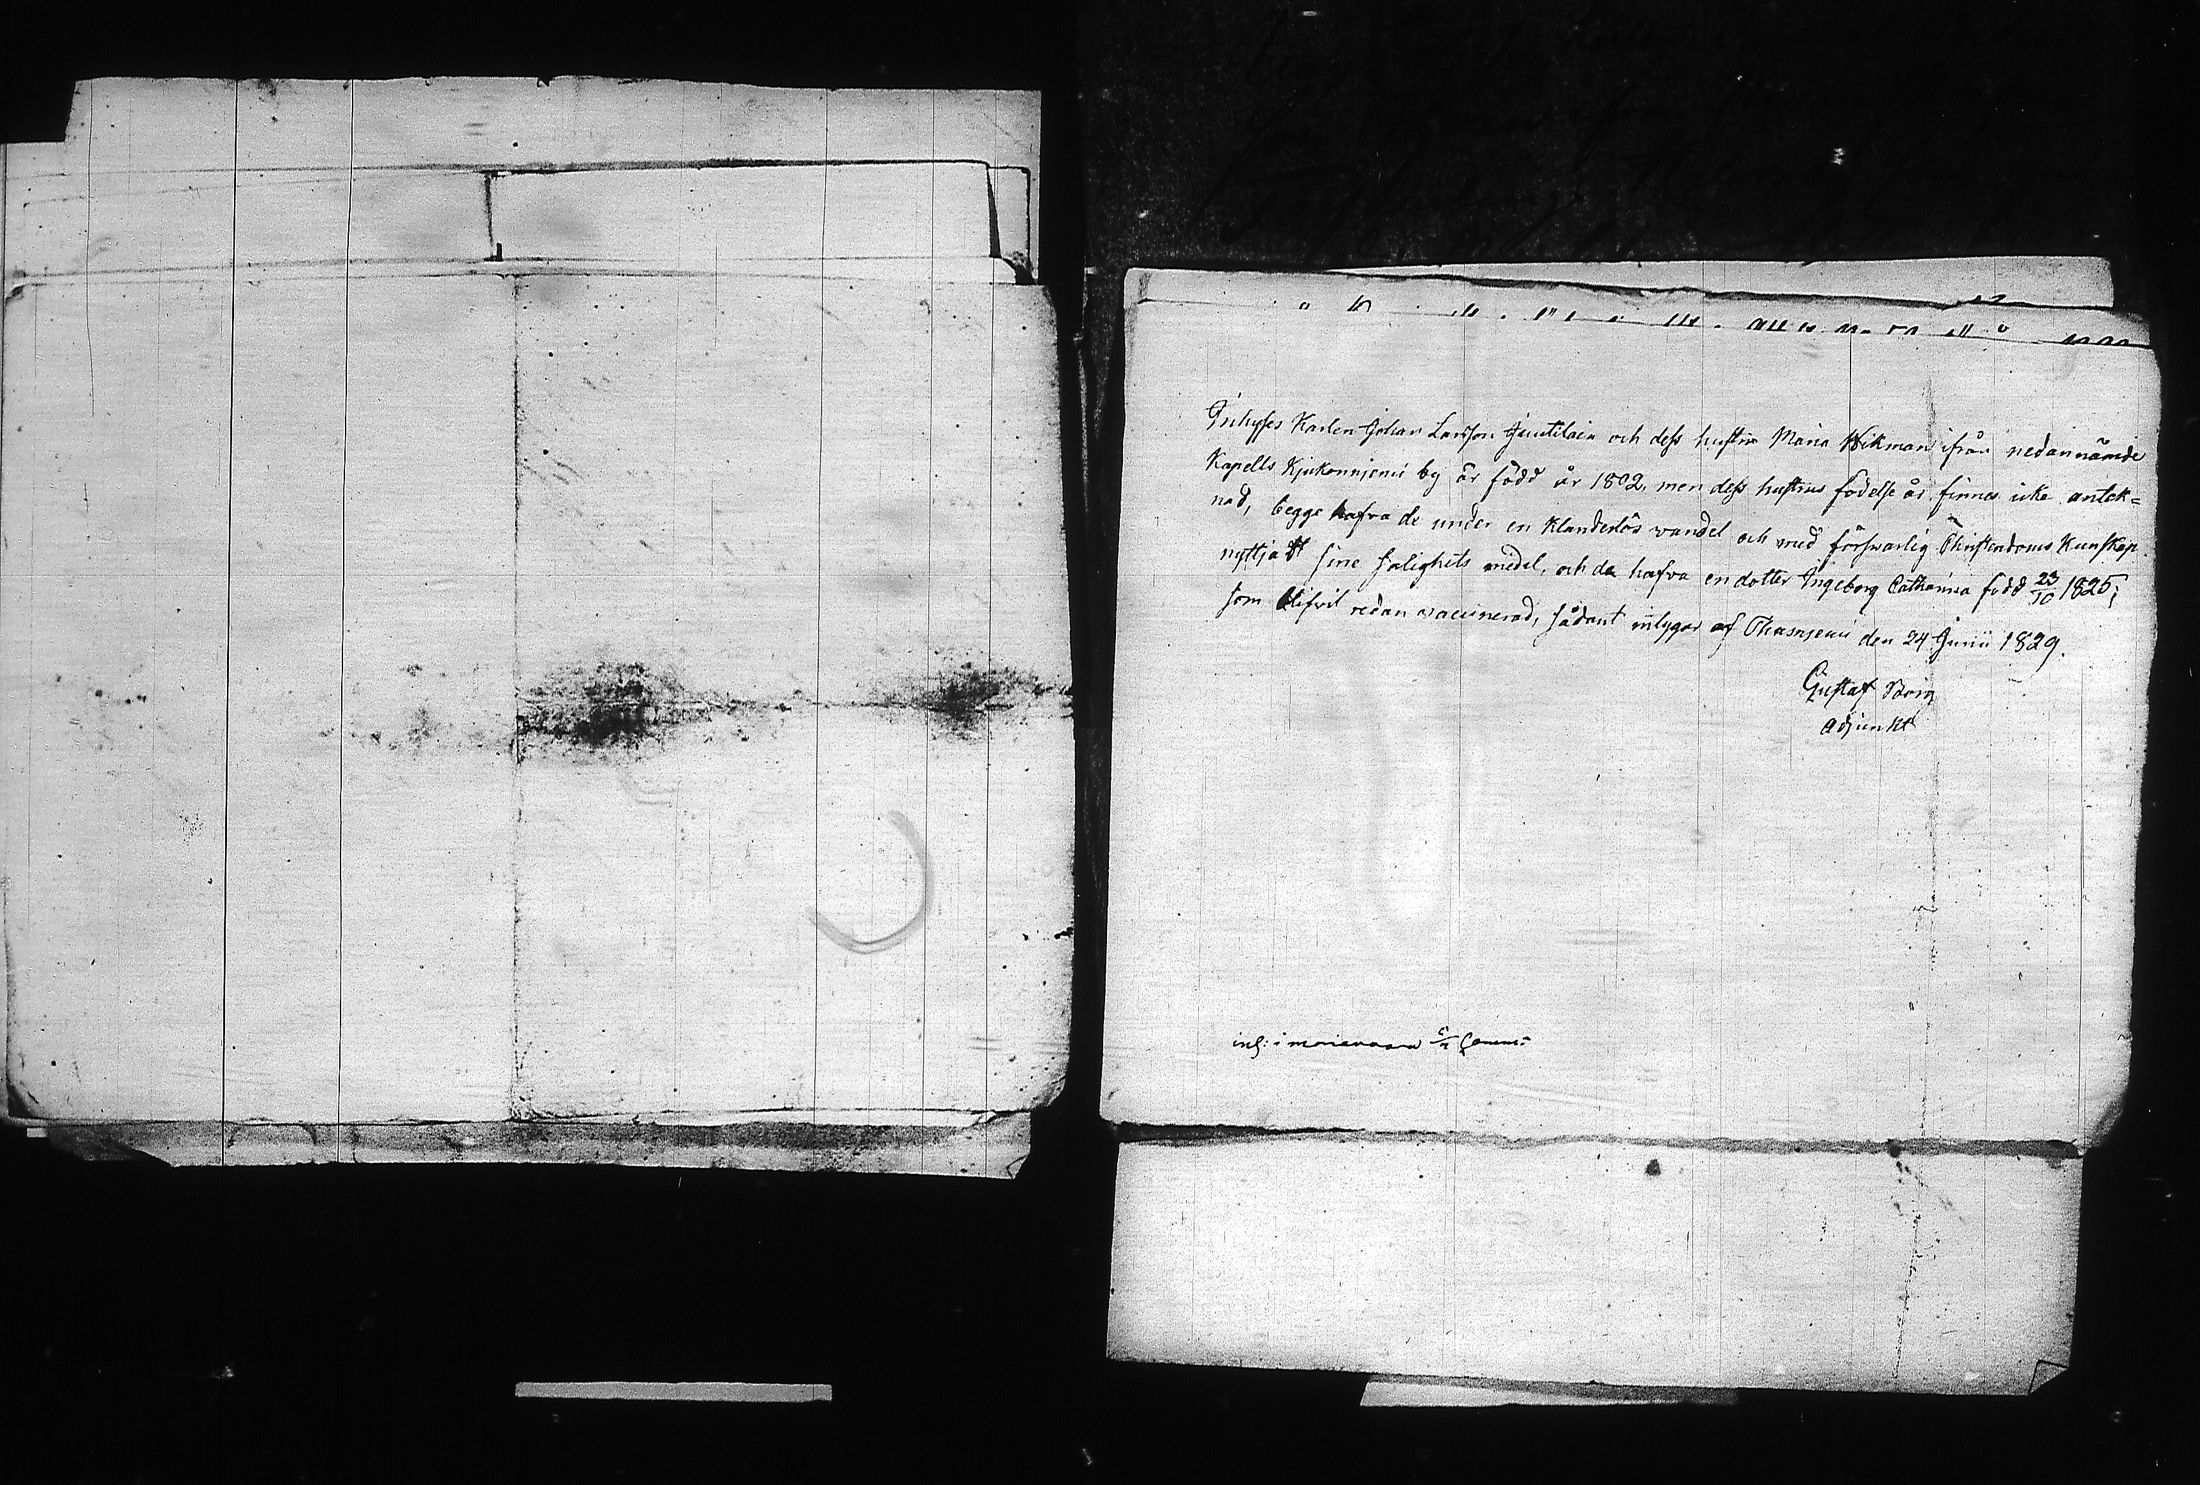 Inhyses Karlen Johan Larsson Juutilain och dess hustru Maria Wikman ifrån nedannämde
Kapells Kjukonnjemi by är född år 1802, men dess hustrus födelse år finnes icke antek=
nad, begge hafva de under en klanderlös vandel och med försvarlig Christendoms Kunskap
nyttjatt sine salighets medel, och de hafva en dotter Ingeborg Catharina född 23/10 1825;
som blifvit redan vaccinerad, sådant intygar af Thusnjemi den 24 Junii 1829.
Gustaf Borg
Adjunkt